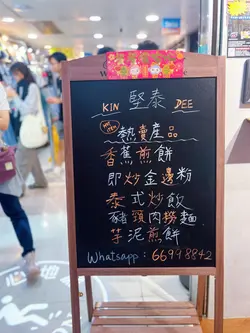 KIN 堅泰 DEE
熱賣產品
香蕉煎餅
即炒金邊粉
泰式炒飯
豬頸肉撈麵
芋泥煎餅
Whatsapp: 66998842